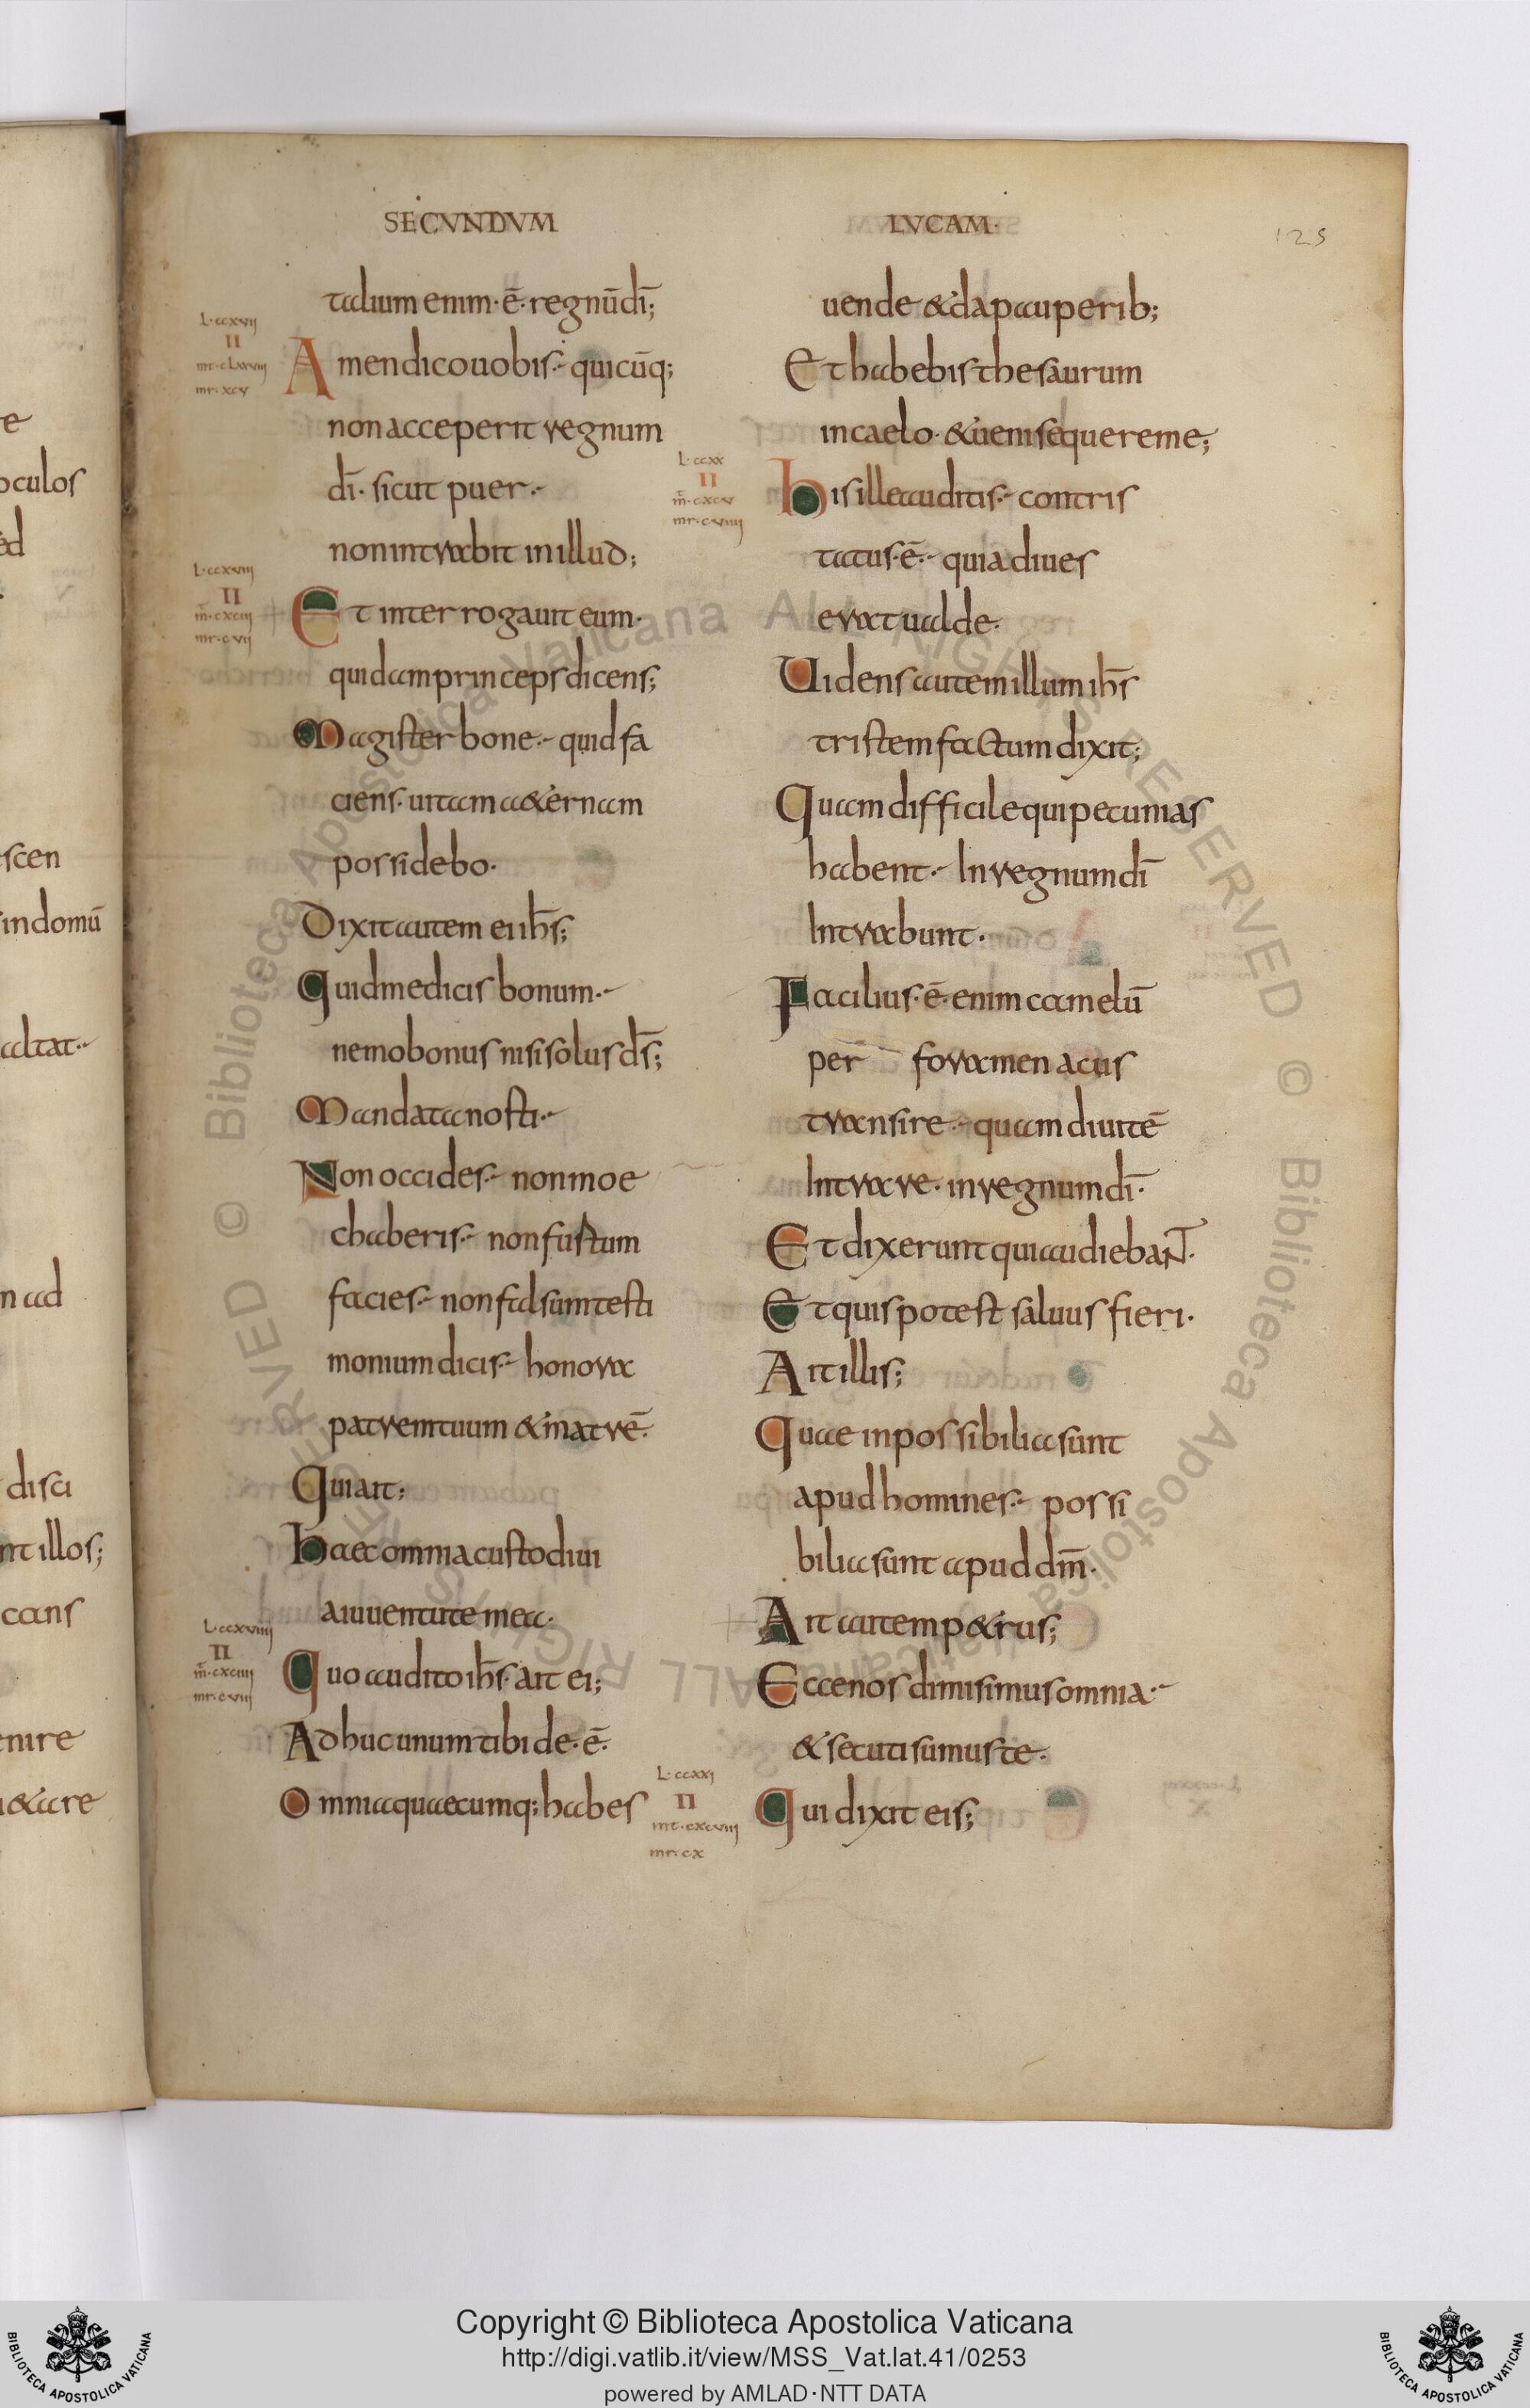 SECVNDVM
talium enim · ē · regnū dī;
L·ccxvii
II
mt·clxxviii
mr·xcv
Amen dico uobis · quicūq;
non acceperit regnum
dī · sicut puer ·
non intrabit in illud;
L·ccxviii
II
m̄·cxciii
mr·cvii
Et interrogauit eum ·
quidam princeps dicens;
Magister bone · quid fa
ciens · uitam aeternam
possidebo ·
Dixit autem ei ih̄s;
Quid me dicis bonum ·
nemo bonus nisi solus d̄s;
Mandata nosti ·
Non occides · non moe
chaberis · non furtum
facies · non falsum testi
monium dicis · honora
patrem tuum & matrē ·
Qui ait;
Haec omnia custodiui
a iuuentute mea ·
L·ccxviiii
II
m̄·cxciiii
mr·cviii
Quo audito ih̄s · ait ei;
Adhuc unum tibi de · ē ·
Omnia quaecumq; habes
LVCAM ·
125
uende & da pauperib;
Et habebis thesaurum
in caelo · & ueni sequere me;
L·ccxx
II
m̄·cxcv
mr·cviiii
His ille auditis · contris
tatus · ē · quia diues
erat ualde ·
Uidens autem illum ih̄s
tristem factum dixit;
Quam difficile qui pecunias
habent · In regnum dī
Intrabunt ·
Facilius · ē · enim camelū
per foramen acus
transire · quam diuitē
Intrare · in regnum dī ·
Et dixerunt qui audiebaNT ·
Et quis potest saluus fieri ·
Ait illis;
Quae inpossibilia sunt
apud homines · possi
bilia sunt apud dm̄ ·
Ait autem petrus;
Ecce nos dimisimus omnia ·
& secuti sumus te ·
L·ccxxi
II
mt·cxcviii
mr·cx
Qui dixit eis;
e
oculos
ed
scen
in domū
altat ·
m ad
disci
nt illos;
cans
enire
Copyright © Biblioteca Apostolica Vaticana
http://digi.vatlib.it/view/MSS_Vat.lat.41/0253
powered by AMLAD·NTT DATA
BIBLIOTECA APOSTOLICA VATICANA
BIBLIOTECA APOSTOLICA VATICANA
© Biblioteca Apostolica Vaticana ALL RIGHTS RESERVED © Biblioteca Apostolica Vaticana ALL RIGHTS RESERVED